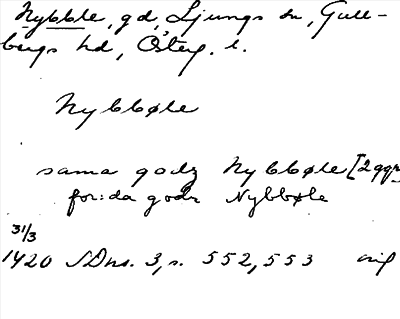 Nybble, gd, Ljungs sn, Gull-
bergs hd, Österg. l.
Nybbøle
sama godz Nybbøle [2 ggr]
for:da godz Nybbøle
31/3
1420 SDns. 3, s. 552, 553 orig